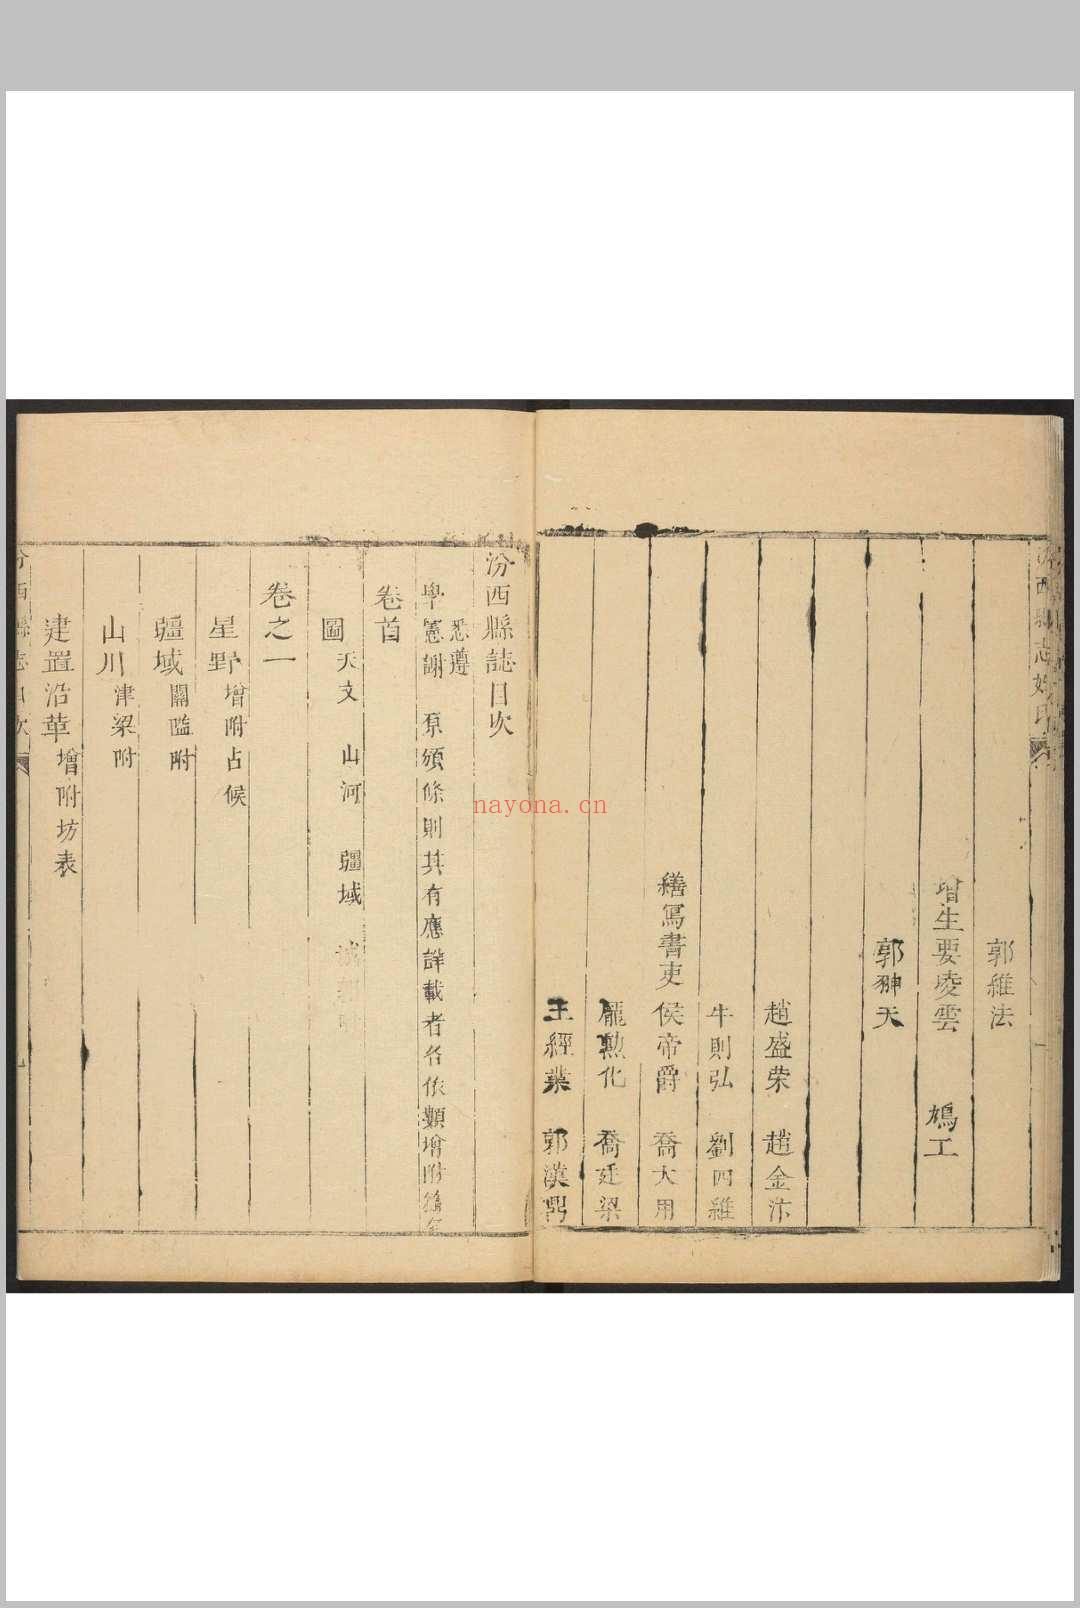 汾西縣志姓氏
郭維法
增生要凌雲 鳩工
郭翀天
趙盛荣 趙金汴
牛則弘 劉四維
繕寫書吏 侯帝爵 喬大用
龎勲化 喬廷梁
王經業 郭漢鼎
汾西縣誌目次
悉遵
學憲謝 原頒條則其有應詳載者各依類增附
卷首
圖 天文 山河 疆域
卷之一
星野 增附占候
疆域 關隘附
山川 津梁附
建置沿革 增附坊表
汾西縣志目次
nayona.cn